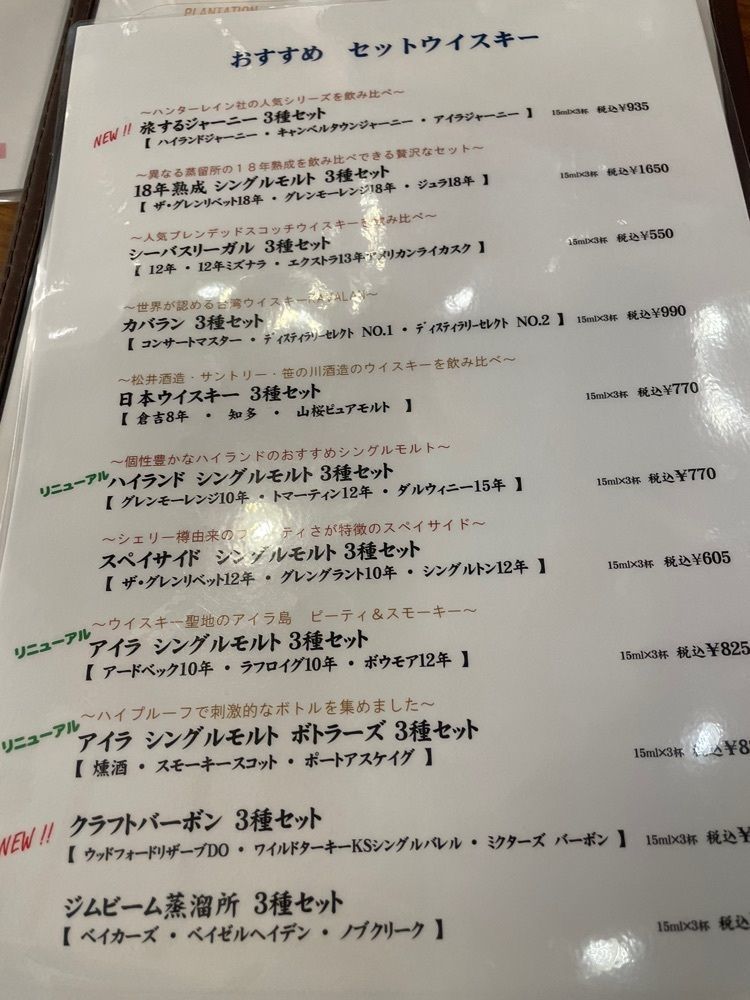 PLANTATION
おすすめ　セットウイスキー
～ハンターレイン社の人気シリーズを飲み比べ～
NEW!! 旅するジャーニー 3種セット
【 ハイランドジャーニー ・ キャンベルタウンジャーニー ・ アイラジャーニー 】 15ml×3杯 税込¥935
～異なる蒸留所の18年熟成を飲み比べできる贅沢なセット～
18年熟成 シングルモルト 3種セット
【 ザ・グレンリベット18年 ・ グレンモーレンジ18年 ・ ジュラ18年 】 15ml×3杯 税込¥1650
～人気ブレンデッドスコッチウイスキーを飲み比べ～
シーバスリーガル 3種セット
【 12年 ・ 12年ミズナラ ・ エクストラ13年アメリカンライカスク 】 15ml×3杯 税込¥550
～世界が認める台湾ウイスキーKAVALAN～
カバラン 3種セット
【 コンサートマスター ・ ディスティラリーセレクト NO.1 ・ ディスティラリーセレクト NO.2 】 15ml×3杯 税込¥990
～松井酒造・サントリー・笹の川酒造のウイスキーを飲み比べ～
日本ウイスキー 3種セット
【 倉吉8年 ・ 知多 ・ 山桜ピュアモルト 】 15ml×3杯 税込¥770
～個性豊かなハイランドのおすすめシングルモルト～
リニューアル ハイランド シングルモルト 3種セット
【 グレンモーレンジ10年 ・ トマーティン12年 ・ ダルウィニー15年 】 15ml×3杯 税込¥770
～シェリー樽由来のフ ティさが特徴のスペイサイド～
スペイサイド シングルモルト 3種セット
【 ザ・グレンリベット12年 ・ グレングラント10年 ・ シングルトン12年 】 15ml×3杯 税込¥605
～ウイスキー聖地のアイラ島　ピーティ＆スモーキー～
リニューアル アイラ シングルモルト 3種セット
【 アードベック10年 ・ ラフロイグ10年 ・ ボウモア12年 】 15ml×3杯 税込¥825
～ハイプルーフで刺激的なボトルを集めました～
リニューアル アイラ シングルモルト ボトラーズ 3種セット
【 燻酒 ・ スモーキースコット ・ ポートアスケイグ 】 15ml×3杯 税込¥8
NEW!! クラフトバーボン 3種セット
【 ウッドフォードリザーブDO ・ ワイルドターキーKSシングルバレル ・ ミクターズ バーボン 】 15ml×3杯 税込¥
ジムビーム蒸溜所 3種セット
【 ベイカーズ ・ ベイゼルヘイデン ・ ノブクリーク 】 15ml×3杯 税込